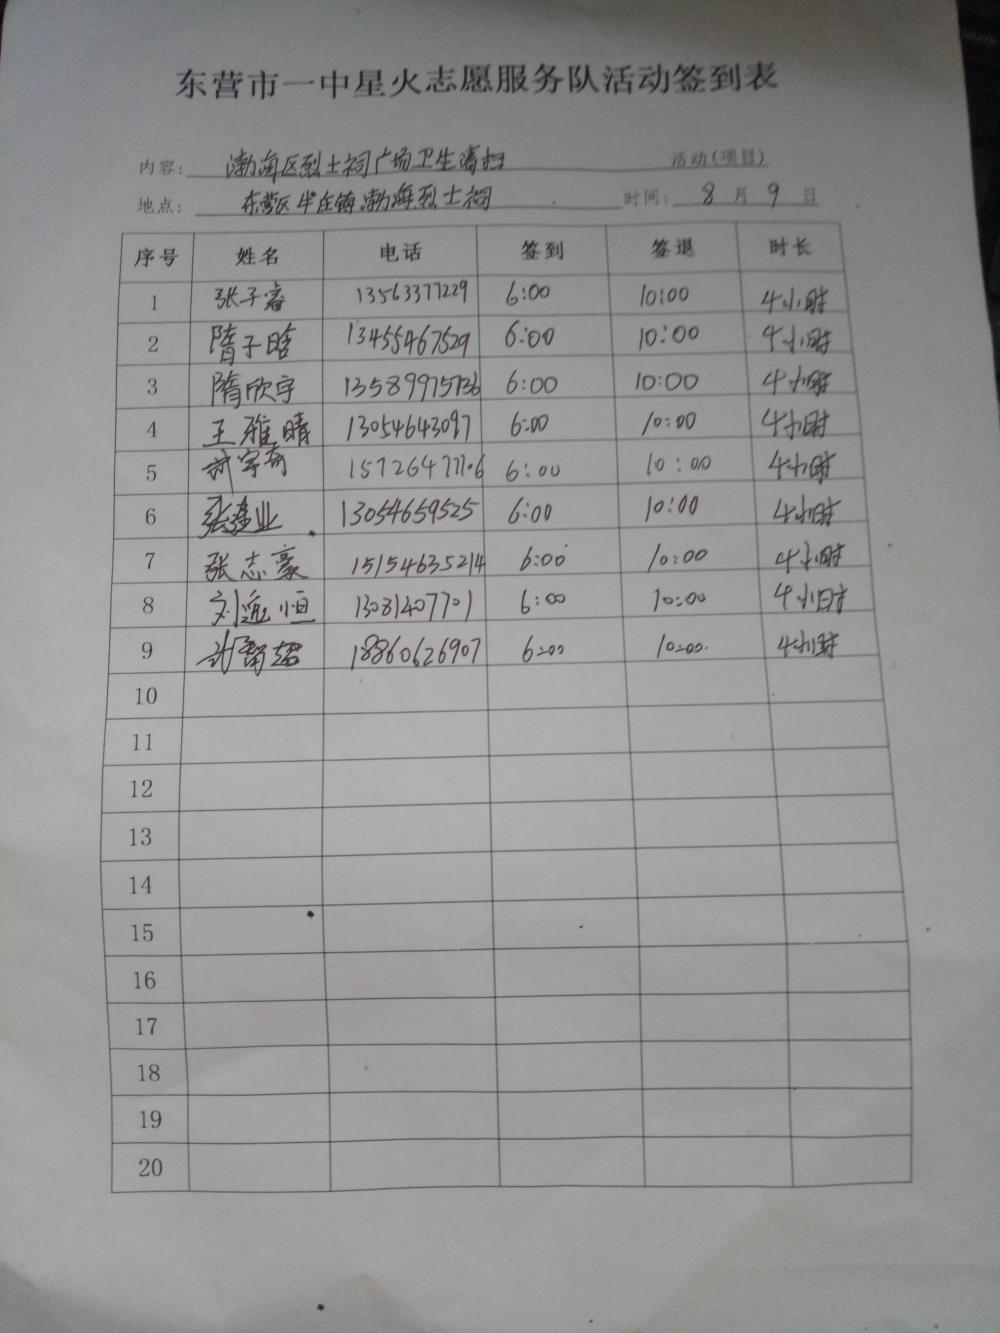 东营市一中星火志愿服务队活动签到表
内容: 渤海区烈士祠广场卫生清扫 活动(项目)
地点: 东营区牛庄镇渤海烈士祠 时间: 8 月 9 日
序号 姓名 电话 签到 签退 时长
1 张子睿 13563377229 6:00 10:00 4小时
2 隋子晗 13455467529 6:00 10:00 4小时
3 隋欣宇 13589975736 6:00 10:00 4小时
4 王雅晴 13054643097 6:00 10:00 4小时
5 15726477106 6:00 10:00 4小时
6 13054659525 6:00 10:00 4小时
7 张志豪 15154635214 6:00 10:00 4小时
8 刘远恒 13081407701 6:00 10:00 4小时
9 18860626907 6:00 10:00 4小时
10
11
12
13
14
15
16
17
18
19
20